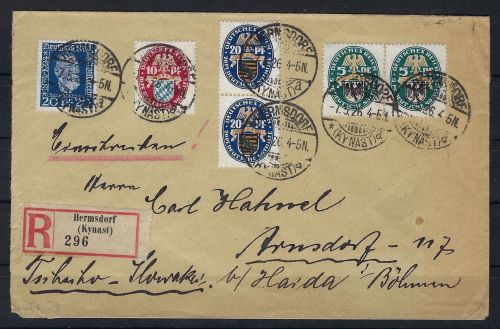 Deutsches Reich
20 Pf
10 Pf
DEUTSCHES REICH
20 Pf
DEUTSCHES REICH
20 Pf
DEUTSCHES REICH
5 Pf
5 Pf
HERMSDORF
(KYNAST)
-1.5.26. 4-5N.
Einschreiben!
R
Hermsdorf
(Kynast)
296
Carl Hahnel
Arnsdorf - 117
Tschecho-Slowakei b/Haida i/Böhmen